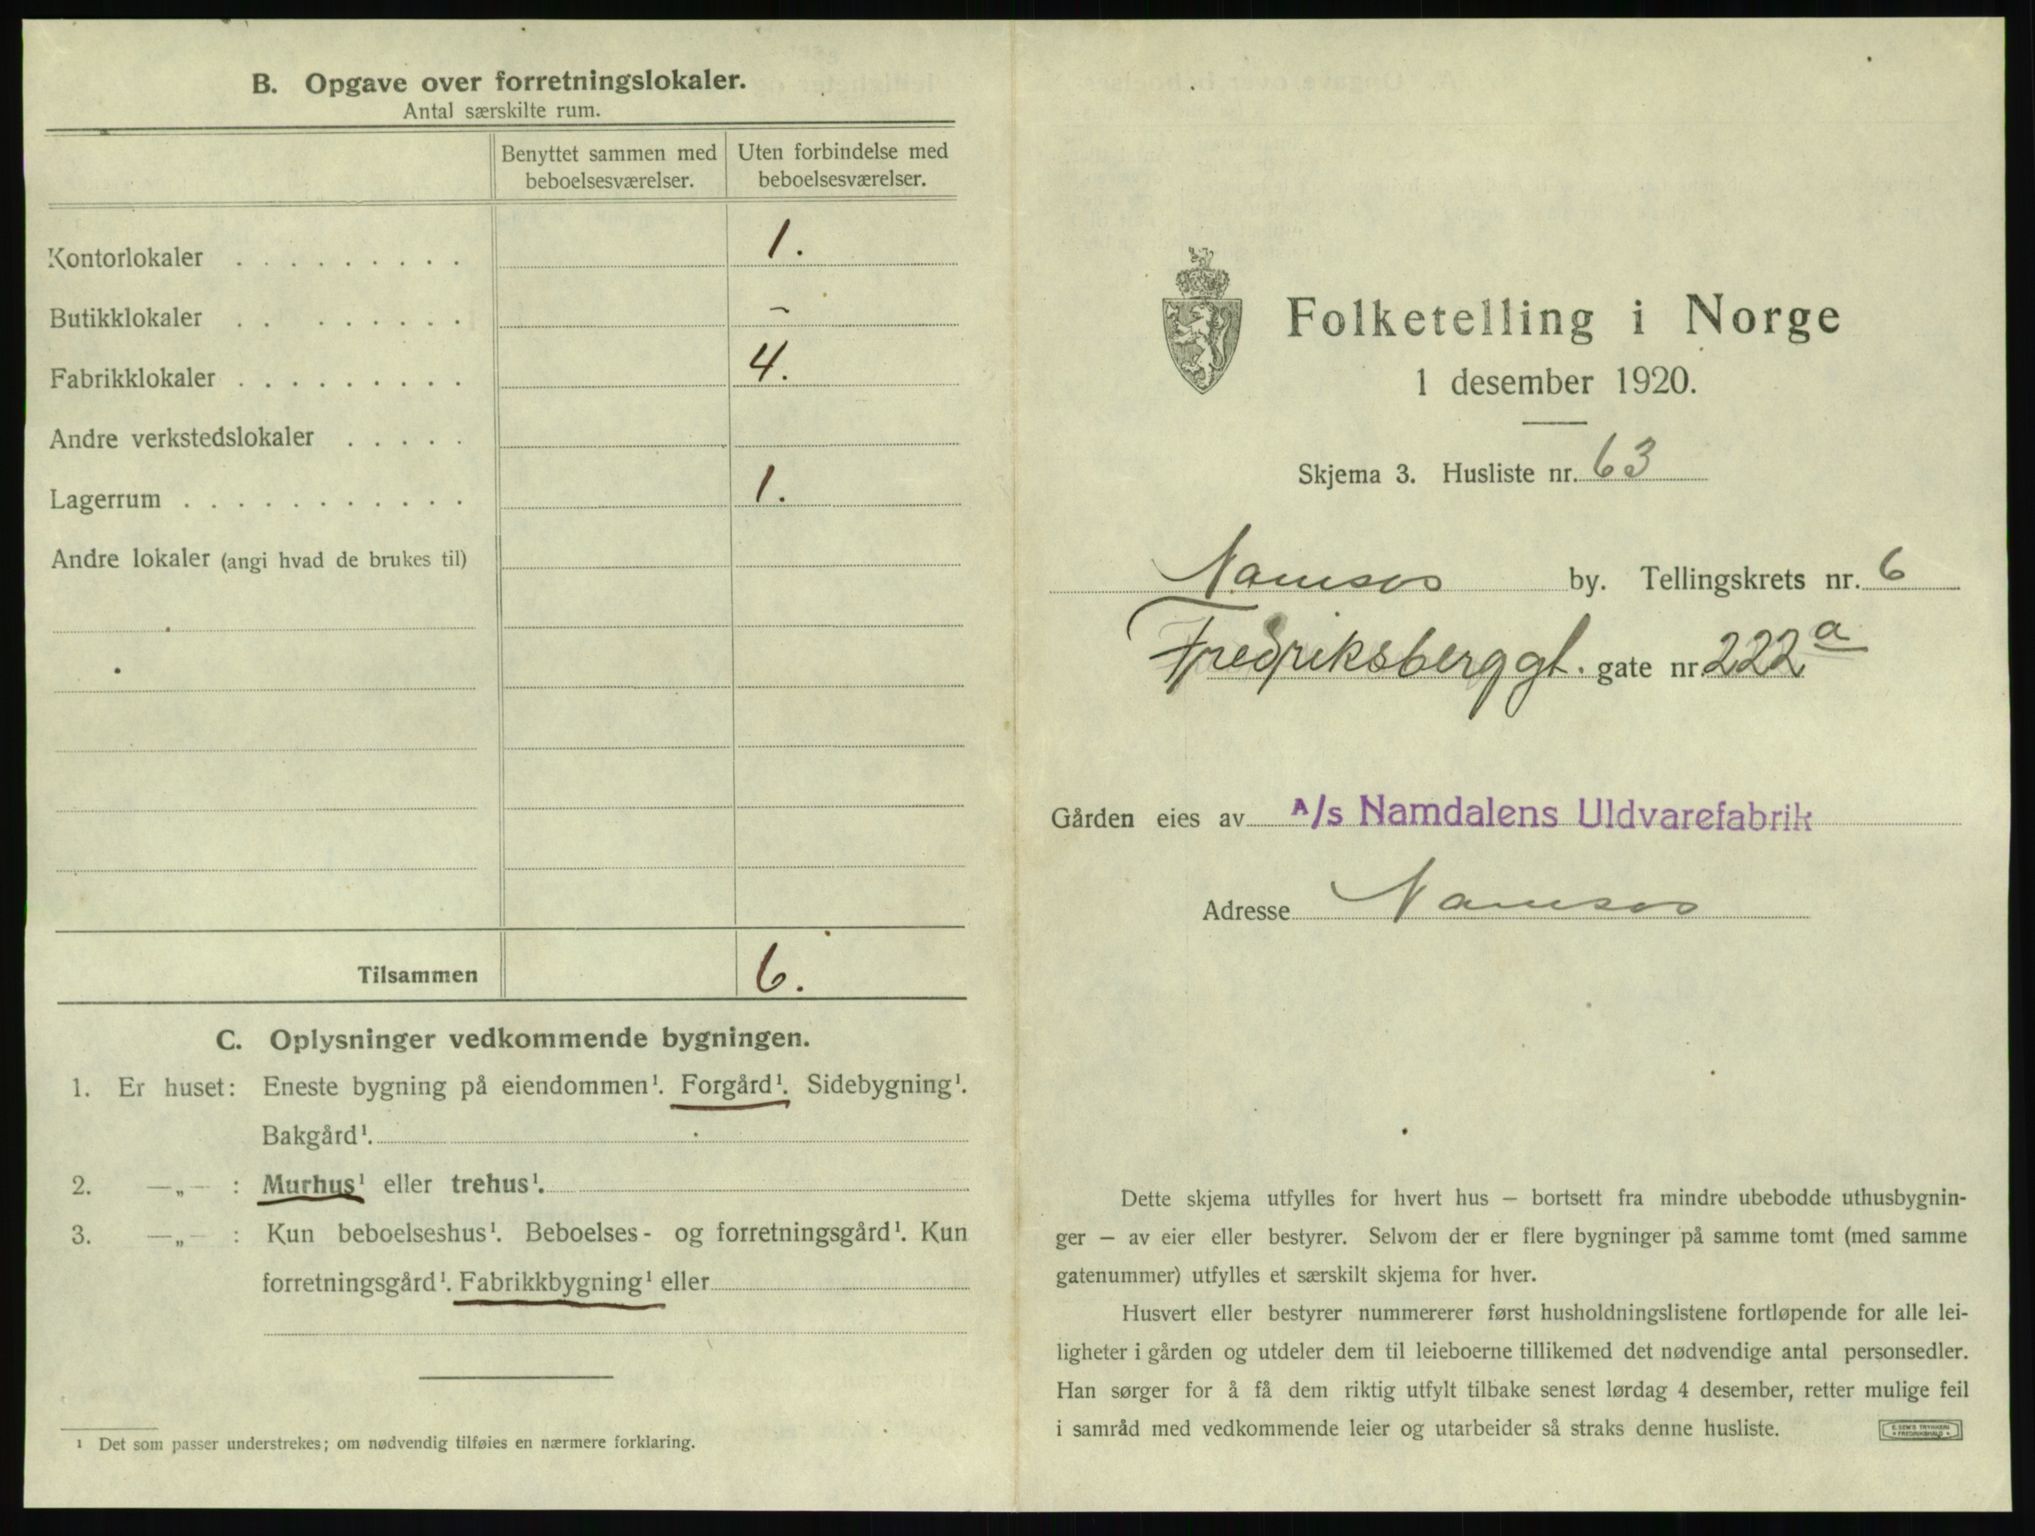 B. Opgave over forretningslokaler.
Antal særskilte rum.
Benyttet sammen med beboelsesværelser.
Uten forbindelse med beboelsesværelser.
Kontorlokaler . . . . . . . . . 1.
Butikklokaler . . . . . . . . –
Fabrikklokaler . . . . . . . . . 4.
Andre verkstedslokaler . . . . .
Lagerrum . . . . . . . . . . . 1.
Andre lokaler (angi hvad de brukes til)
Tilsammen 6.
C. Oplysninger vedkommende bygningen.
1. Er huset: Eneste bygning på eiendommen¹. Forgård¹. Sidebygning¹.
Bakgård¹.
2. —„— : Murhus¹ eller trehus¹.
3. —„— : Kun beboelseshus¹. Beboelses- og forretningsgård¹. Kun
forretningsgård¹. Fabrikkbygning¹ eller
¹ Det som passer understrekes; om nødvendig tilføies en nærmere forklaring.
Folketelling i Norge
1 desember 1920.
Skjema 3. Husliste nr. 63
Namsos by. Tellingskrets nr. 6
Fredriksberggt. gate nr. 222 a
Gården eies av A/s Namdalens Uldvarefabrik
Adresse Namsos
Dette skjema utfylles for hvert hus – bortsett fra mindre ubebodde uthusbygnin-
ger – av eier eller bestyrer. Selvom der er flere bygninger på samme tomt (med samme
gatenummer) utfylles et særskilt skjema for hver.
Husvert eller bestyrer nummererer først husholdningslistene fortløpende for alle lei-
ligheter i gården og utdeler dem til leieboerne tillikemed det nødvendige antal personsedler.
Han sørger for å få dem riktig utfylt tilbake senest lørdag 4 desember, retter mulige feil
i samråd med vedkommende leier og utarbeider så straks denne husliste.
E. SEM'S TRYKKERI
FREDRIKSHALD